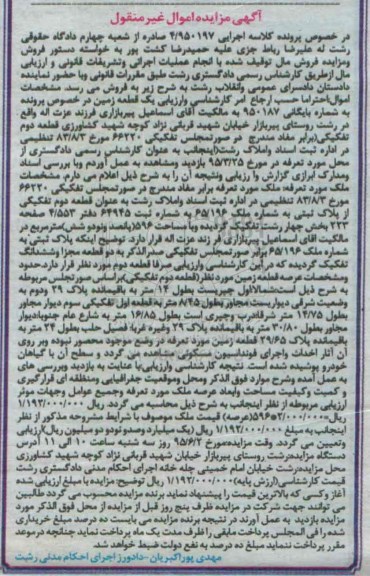 آگهی مزایده اموال غیر منقول
در خصوص پرونده کلاسه اجرایی ۴/۹۵۰۱۹۷ صادره از شعبه چهارم دادگاه حقوقی
رشت له علیرضا رباط جزی علیه حمیدرضا کشت پور به خواسته دستور فروش
ومزایده فروش مال توقیف شده با انجام عملیات اجرائی وتشریفات قانونی و ارزیابی
مال ازطریق کارشناس رسمی دادگستری رشت طبق مقررات قانونی وبا حضور نماینده
دادستان دادسرای عمومی وانقلاب رشت به شرح زیر به فروش می رسد. مشخصات
اموال:احتراما حسب ارجاع امر کارشناسی وارزیابی یک قطعه زمین در خصوص پرونده
به شماره بایگانی ۹۵۰۱۸۷ به مالکیت آقای اسماعیل پیربازاری فرزند عزت اله واقع
در رشت روستای پیربازار خیابان شهید قربانی نژاد کوچه شهید کشاورزی قطعه دوم
تفکیکی (برابر مفاد مندرج در صورتمجلس تفکیکی ۶۶۲۲۰ مورخ ۸۳/۸/۳ تنظیمی
در اداره ثبت اسناد واملاک رشت)اینجانب به عنوان کارشناس رسمی دادگستری از
محل مورد تعرفه در مورخ ۹۵/۳/۲۵ بازدید ومشاهده به عمل آوردم وبا بررسی اسناد
ومدارک ابرازی گزارش وا رزیابی ونتیجه آن را به شرح ذیل اعلام می دارم. مشخصات
ملک مورد تعرفه: ملک مورد تعرفه برابر مفاد مندرج در صورتمجلس تفکیکی ۶۶۲۲۰
مورخ ۸۳/۸/۳ تنظیمی در اداره ثبت اسناد واملاک رشت به عنوان قطعه دوم تفکیکی
از پلاک ثبتی به شماره ملک ۶۵/۱۹۶ به شماره ثبت ۶۴۹۴۵ دفتر ۴/۵۵۳ صفحه
۲۲۳ بخش چهار رشت تفکیک گردیده وبا مساحت ۵۹۶(پانصد ونودو شش)مترمربع در
مالکیت آقای اسماعیل پیربازاری فر زند عزت اله قرار دارد. توضیح اینکه پلاک ثبتی به
شماره ملک ۶۵/۱۹۶ برابر صورتمجلس تفکیکی صدرالذکر به دو قطعه مجزا وششدانگ
تفکیک گردیده که در این کارشناسی وارزیابی صرفا قطعه دوم مورد نظر قرار دارد.حدود
ومشخصات عرصه قطعه زمین مورد نظر (قطعه دوم تفکیکی)براساس صورتجلس مربوطه
به شرح ذیل است:شمالااول چپریست بطول ۱۲ متر به باقیمانده پلاک ۲۹ ودوم به
وضعیت شرقی دیواریست مجاور بطول ۸/۴۵ متر به قطعه اول تفکیکی سوم دیوار مجاور
بطول ۱۴/۷۵ متر شرقادرب وچپری است بطول ۱۶/۸۵ متر به شارع عام جنوبادیوار
مجاور بطول ۳۰/۸۰ متر به باقیمانده پلاک ۲۹ وغیره غربا: فصیل حلب بطول ۲۴ متر به
باقیمانده پلاک ۲۹/۶۵ قطعه زمین مورد تعرفه در وضع موجود محصور نبوده وبر روی
آن آثار احداث واجرای فونداسیون مسکونی مشاهده می گردد و سطح آن با گیاهان
خودرو پوشیده شده است. نتیجه کارشناسی وارزیابی:با عنایت به بازدید وبررسی های
به عمل آمده وشرح موارد فوق الذکر ومحل وموقعیت جغرافیایی ومنطقه ای قرارگیری
و کمیت وکیفیت مساحت وابعاد عرصه ملک مورد تعرفه وجمیع عوامل وجهات موثر
ارزیابی مربوطه از نظر اینجانب به شرح ذیل محاسبه می گردد. ریال ۱/۱۹۲/۰۰۰/۰۰۰
ریال ۲/۰۰۰/۰۰۰*۵۹۶(عرصه) قیمت ملک موصوف با شرایط مشروحه مذکور از نظر
اینجانب به مبلغ ۱/۱۹۲/۰۰۰/۰۰۰ ریال (یک میلیارد وصدو نودو دو میلیون ریال)ارزیابی
وتعیین می گردد. وقت مزایده:مورخ ۹۵/۶/۲ روز سه شنبه ساعت ۱۰ الی ۱۱ آدرس
دستگاه مزایده:رشت روستای پیربازار خیابان شهید قربانی نژاد کوچه شهید کشاورزی
محل مزایده:رشت خیابان امام خمینی جله خانه اجرای احکام مدنی دادگستری رشت
قیمت کارشناسی(ارزش پایه) ۱/۱۹۲/۰۰۰/۰۰۰ ریال توضیح: مزایده با مبلغ ارزیابی شده
آغاز وکسی که بالاترین قیمت را پیشنهاد نماید برنده مزایده محسوب می گردد طالبین
می توانند جهت شرکت در مزایده ظرف پنج روز قبل از مزایده از محل فوق الذکر مورد
مزایده بازدید به عمل آورند در نتیجه برنده مزایده می بایست ده درصد مبلغ خریداری
شده را فی المجلس پرداخت مابقی را ظرف مدت یک ماه پرداخت نماید چنانچه درموعد
مقرر پرداخت ننماید مبلغ ده درصد به نفع دولت ضبط خواهد شد.
مهدی پوراکبریان -دادورز اجرای احکام مدنی رشت